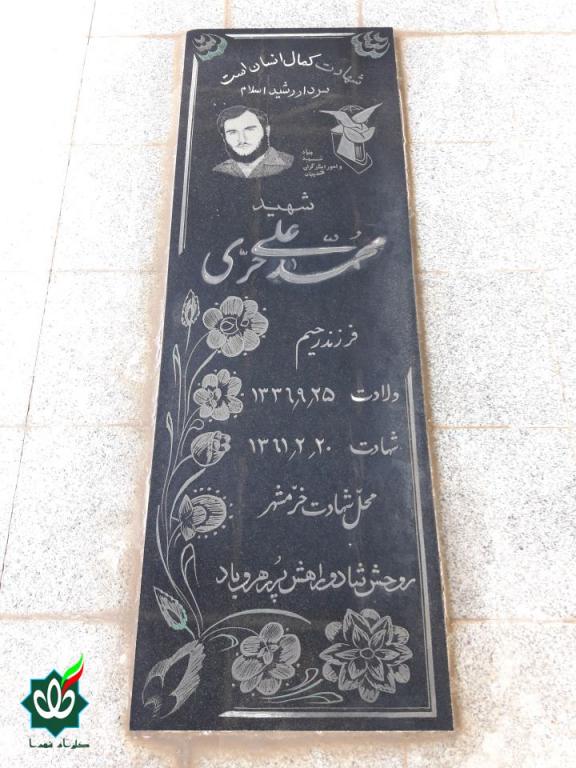 شهادت کمال انسان است
سردار رشید اسلام
بنیاد
شهید
و امور ایثارگران
شهید
محمد علی حرّی
فرزند رحیم
ولادت ۱۳۳۶٫۹٫۲۵
شهادت ۱۳۶۱٫۲٫۲۰
محلّ شهادت خرّمشهر
روحش شاد و راهش پُر رهرو باد
گلزار شهدا